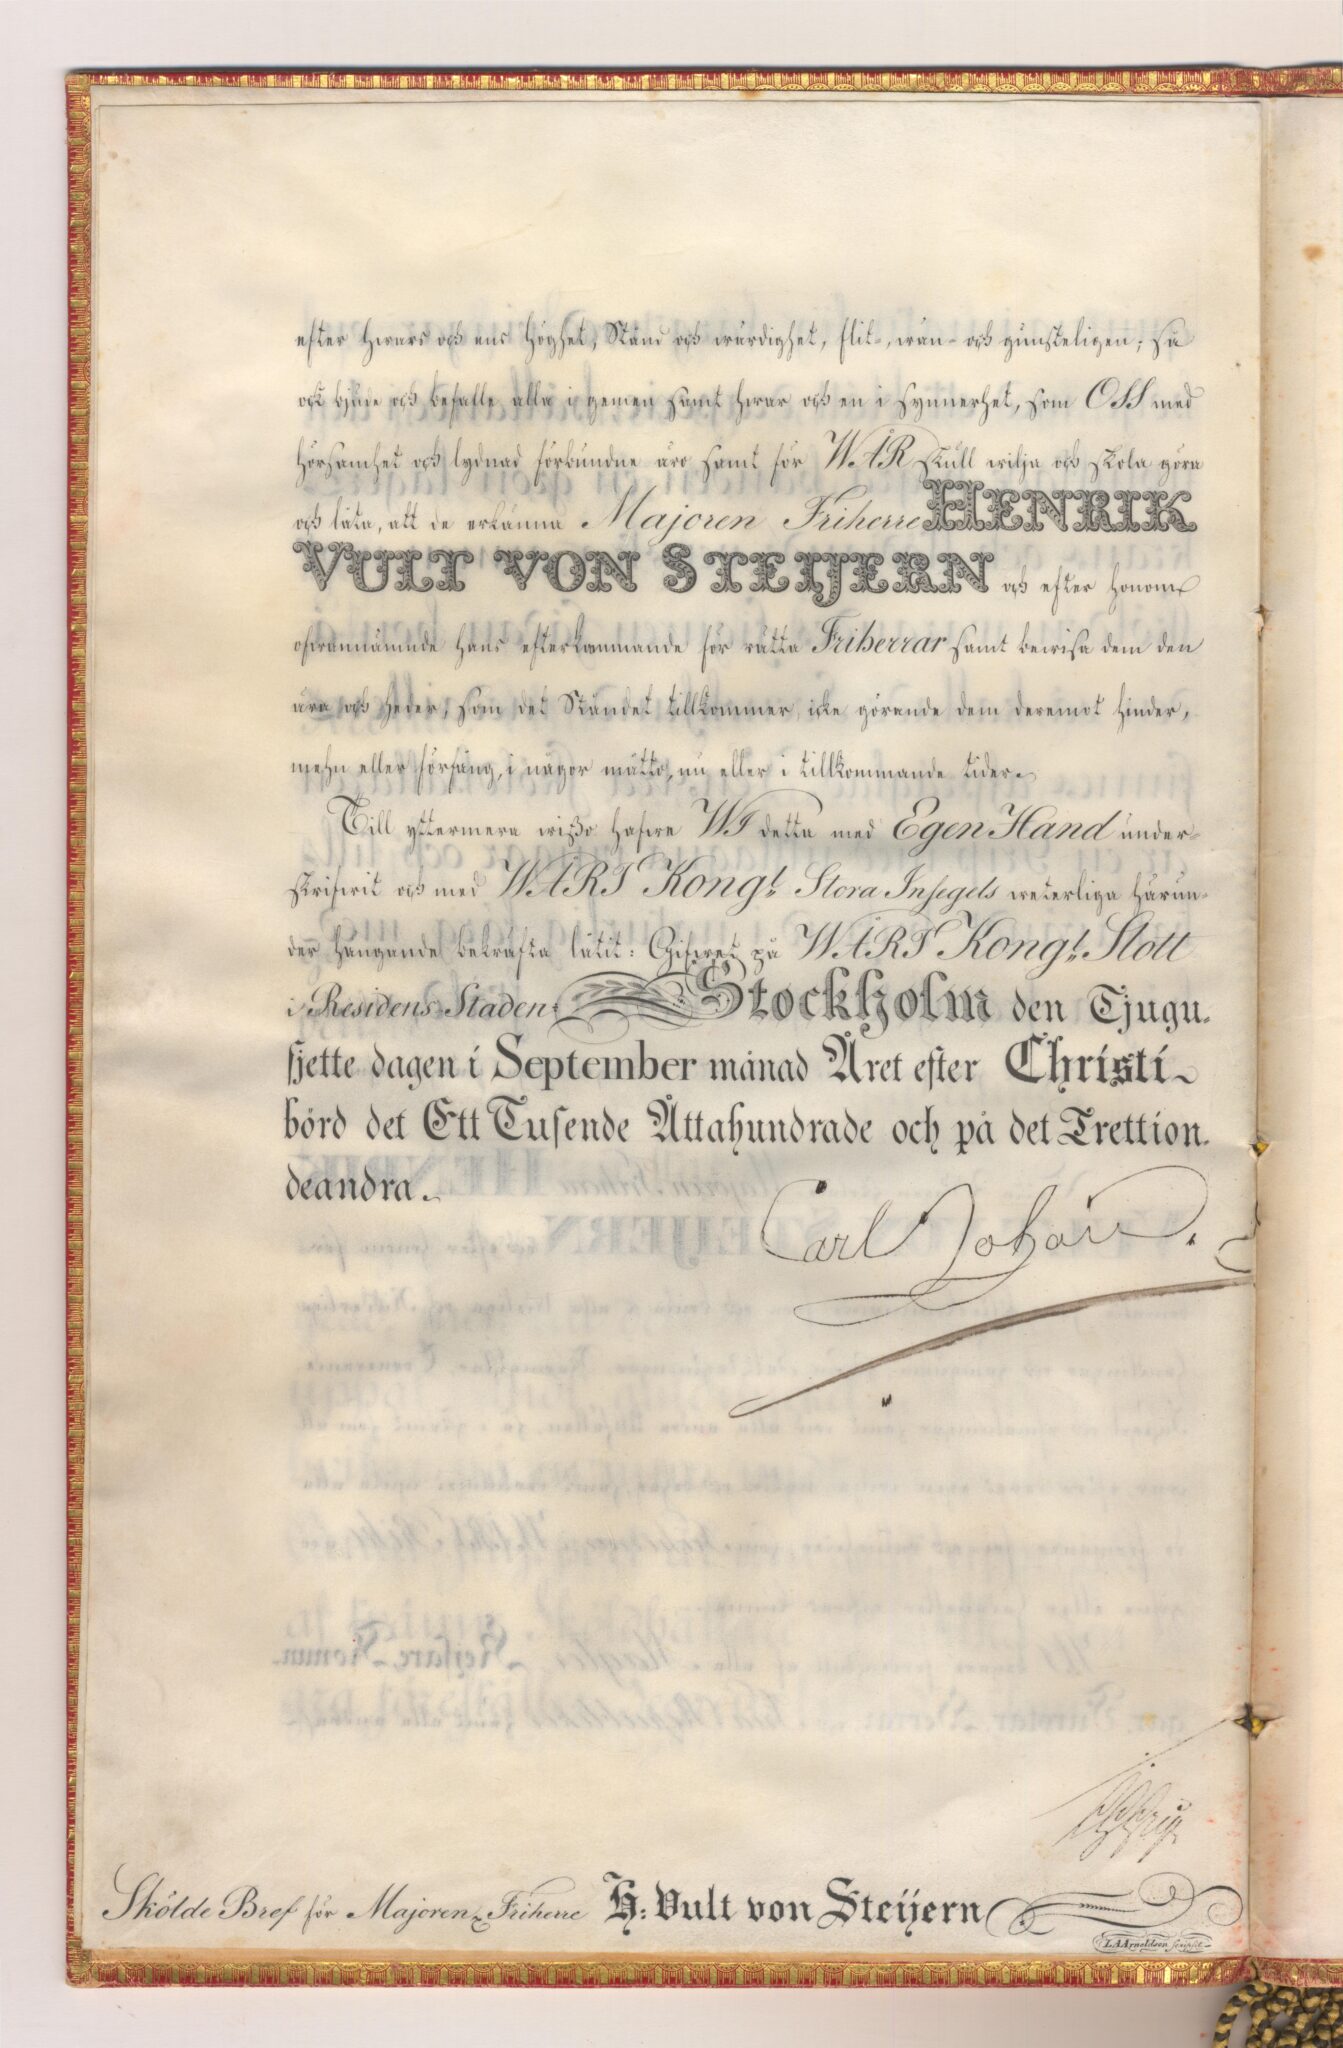 efter hwars och ens Höghet, Stånd och wärdighet, flit-, wän- och gunsteligen; så
ock bjude och befalle alla i gemen samt hwar och en i synnerhet, som OSS med
hörsamhet och lydnad förbundne äro samt för WÅR skull wilja och skola göra
och låta, att de erkänna Majoren Friherre HENRIK
VULT VON STEIJERN och efter honom
ofwannämnde hans efterkommande för rätta Friherrar samt bewisa dem den
ära och heder, som det Ståndet tillkommer, icke görande dem deremot hinder,
mehn eller förfång, i någor måtto, nu eller i tillkommande tider.
Till yttermera wißo hafwe WI detta med Egen Hand under-
skrifwit och med WÅRT Kongl. Stora Insegels weterliga härun-
der hängande bekräfta låtit: Gifwet på WÅRT Kongl. Slott
i Residens Staden Stockholm den Tjugu-
sjette dagen i September månad Året efter Christi
börd det Ett Tusende Åttahundrade och på det Trettion-
deandra.
Carl Johan.
Skölde Bref för Majoren, Friherre H: Vult von Steijern
L A Arnoldson scripsit